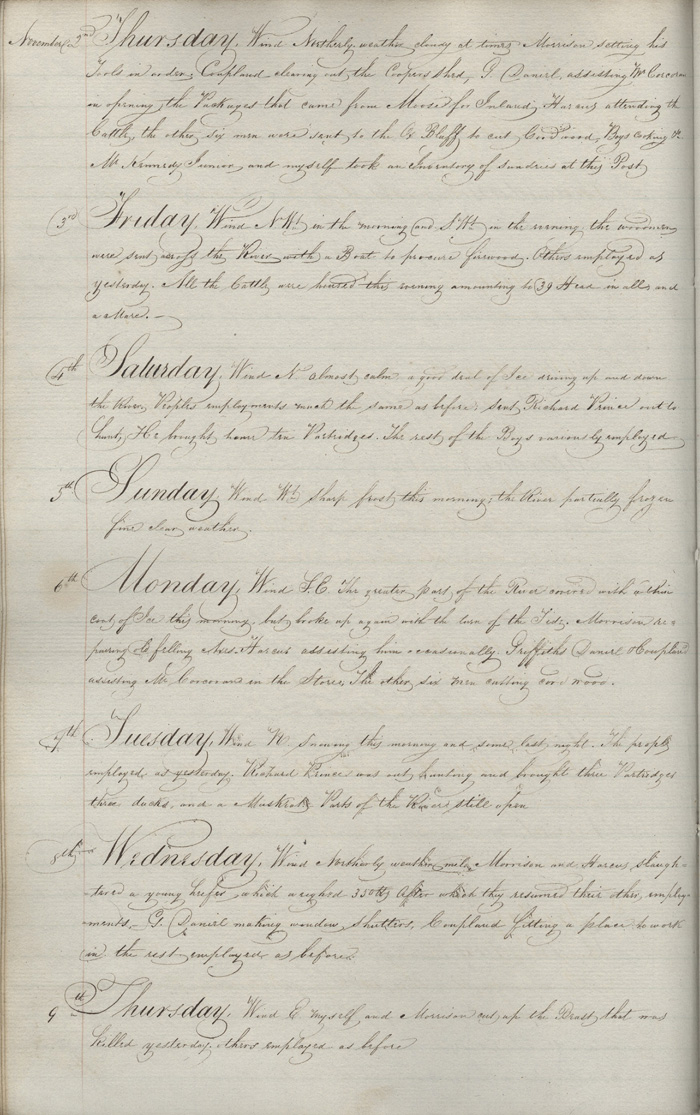 November 2nd Thursday, Wind Northerly weather cloudy at times Morrison setting his
Tools in order, Coupland clearing out the Coopers Shed, G. Daniel, assisting Mr Corcoran
in opening the Packages that came from Moose for Inland, Harcus attending the
Cattle, the other six men were sent to the Bluff to cut Cord wood, Boys cooking &c
Mr Kennedy Junior and myself took an Inventory of sundries at this Post
3rd Friday, Wind N.Wt in the morning and S.Wt in the evening the woodmen
were sent across the River with a Boat to procure firewood. Others employed as
yesterday. All the Cattle were housed this evening amounting to 39 Head in all and
a Mare.
4th Saturday, Wind N almost calm a good deal of Ice driving up and down
the River, Peoples employments much the same as before sent Richard Prince out to
hunt, He brought home ten Partridges. The rest of the Boys variously employed
5th Sunday, Wind Wt sharp frost this morning, the River partially frozen
fine clear weather.
6th Monday, Wind S.E. The greater part of the River covered with a thin
coat of Ice this morning, but broke up again with the turn of the Tide. Morrison re=
pairing & felling Axes. Harcus assisting him occasionally. Griffiths Daniel & Coupland
assisting Mr Corcoran in the Stores, The other six men cutting cord wood.
7th Tuesday, Wind N. Snowing this morning and some last night. The people
employed as yesterday. Richard Prince was out hunting and brought three Partridges
three ducks, and a Muskrat, Parts of the River still open
8th Wednesday, Wind Northerly weather mild, Morrison and Harcus slaugh-
-tered a young heifer which weighed 350 lb After which they resumed their other employ-
-ments, G. Daniel making window Shutters, Coupland fitting a place to work
in the rest employed as before
9th Thursday, Wind E. myself and Morrison cut up the Beast that was
killed yesterday, others employed as before